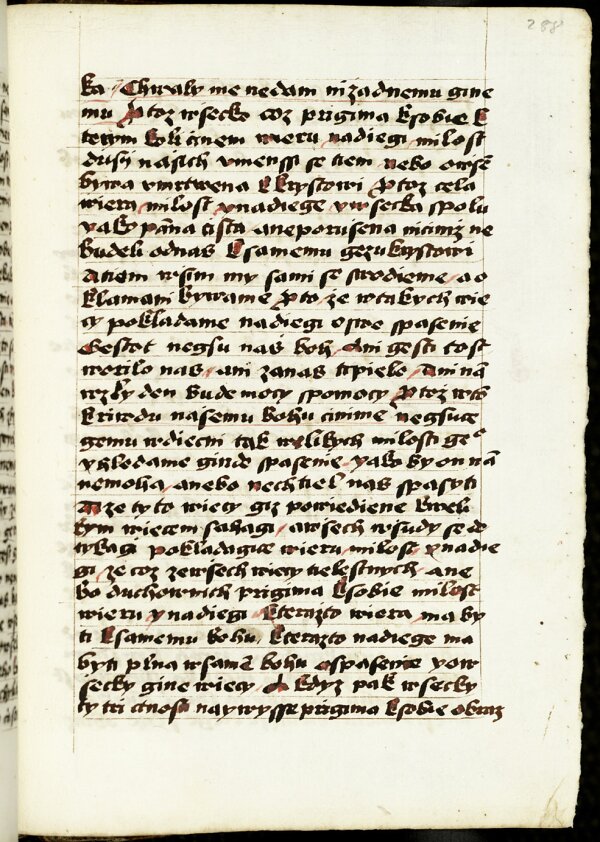 288
ka Chwaly me nedam nižadnemu gine
mu Protoz wsecko coz prigima k sobie k
terym koli činem wieru nadiegi milost
dusij nasich vmenssi se tiem nebo owsse
bywa vmrtwena k krystowi Protoz cela
wiera milost y nadiege y wsecka spolu
yako panna čista aneporusena ničimž ne
budeli odnas k samemu gezukrystowi
A tiem wsim my sami se swodieme a o
klamani bywame Proto ze w takych wie
cy pokladame nadiegi o swe spasenie
Gestot negsu nas boh Ani gesti tost
worilo nas ani zanas trpielo Ani nam
w zly den bude mocy spomocy Protoz weli
k riwdu nasemu bohu činime negsuce
gemu wdiečni tak welikych milosti geo
y hledame ginde spasenie yako by on nam
nemohla anebo nechtiel nas spasyti
A ze tyto wiecy giz powiediene kweli
kym wiecem sahagi a wsech wsudy se do
tykagi pokladagice wieru milost y nadie
gi ze coz ze wsech wiecy tielestnych ane
bo duchownich prigima k sobie milost
wieru y nadiegi kterazto wiera ma by
ti k samemu bohu kterazto nadiege ma
byti plna w samem bohu o spasenie y o w
secky gine wiecy A kdyz pak wsecky
ty tri ctnosti naywysse prigima k sobie obraz